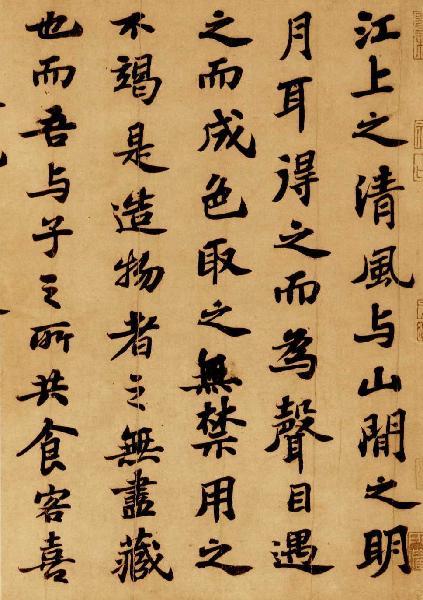 江上之清風与山閒之明
月耳得之而為聲目遇
之而成色取之無禁用之
不竭是造物者之無盡藏
也而吾与子之所共食客喜